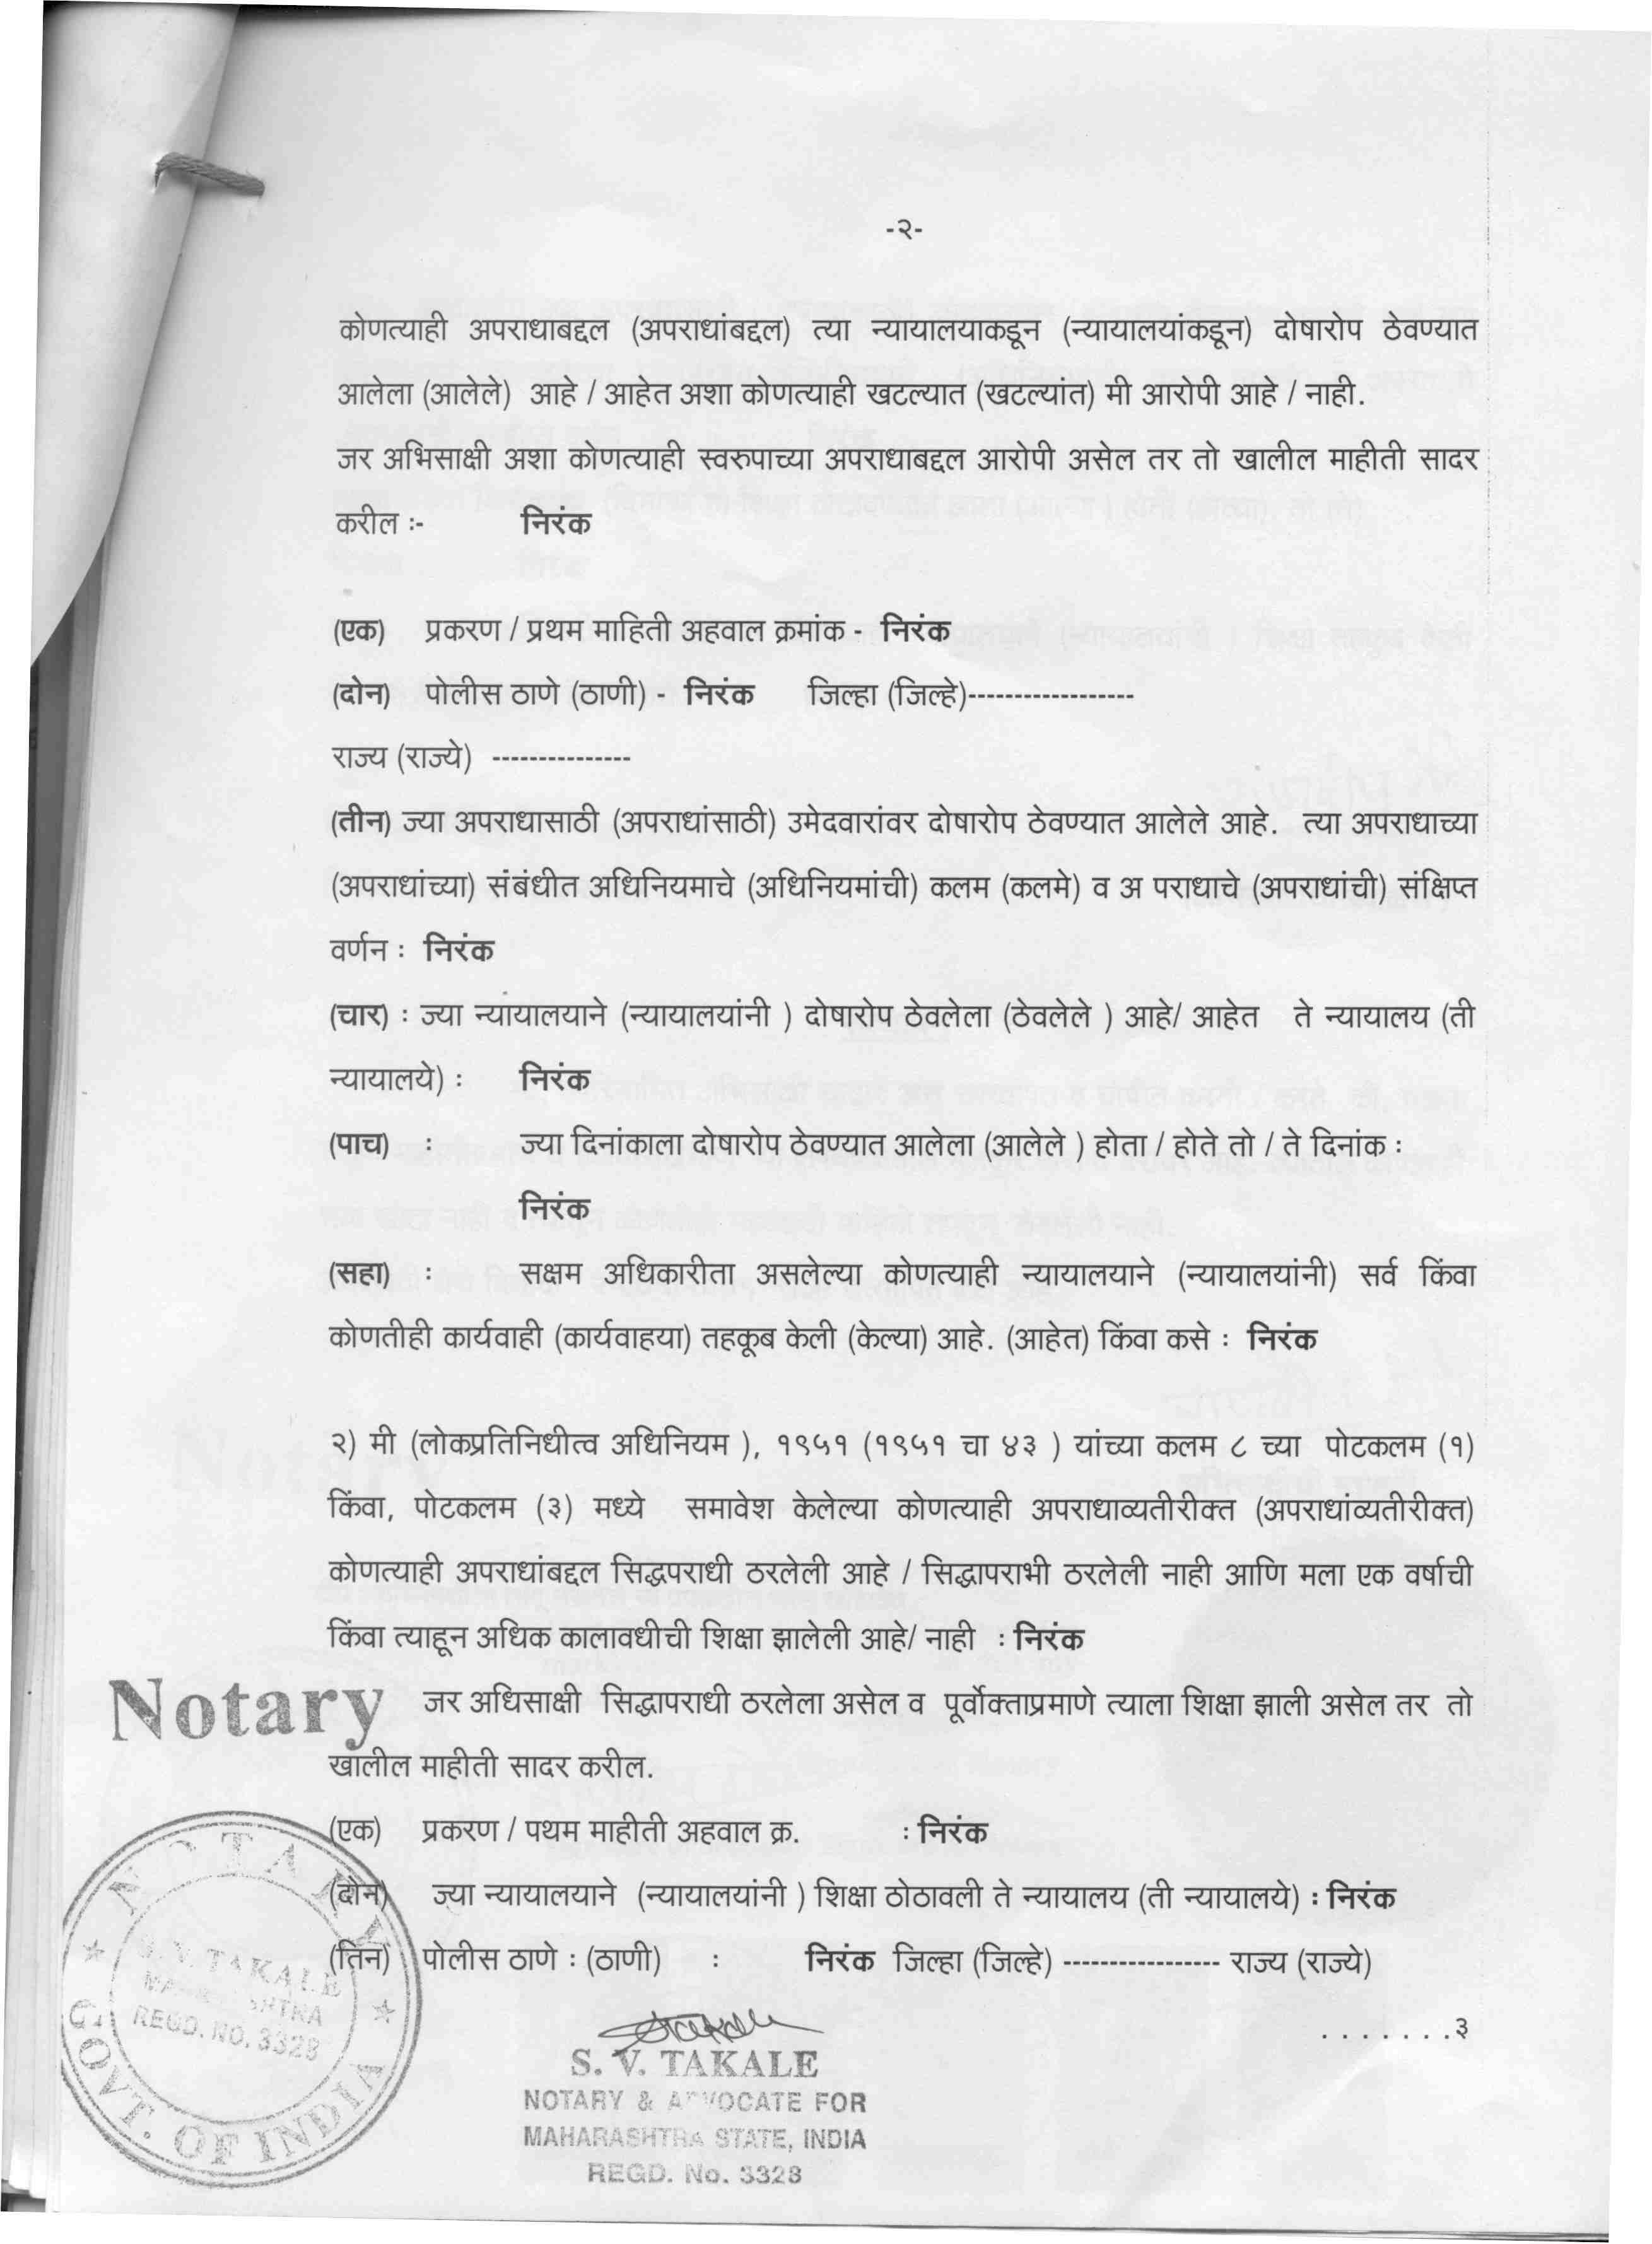 -२-
कोणत्याही अपराधाबद्दल (अपराधांबद्दल) त्या न्यायालयाकडून (न्यायालयांकडून) दोषारोप ठेवण्यात
आलेला (आलेले) आहे / आहेत अशा कोणत्याही खटल्यात (खटल्यांत) मी आरोपी आहे / नाही.
जर अभिसाक्षी अशा कोणत्याही स्वरुपाच्या अपराधाबद्दल आरोपी असेल तर तो खालील माहीती सादर
करील :- निरंक
(एक) प्रकरण / प्रथम माहिती अहवाल क्रमांक - निरंक
(दोन) पोलीस ठाणे (ठाणी) - निरंक जिल्हा (जिल्हे)------------------
राज्य (राज्ये) ---------------
(तीन) ज्या अपराधासाठी (अपराधांसाठी) उमेदवारांवर दोषारोप ठेवण्यात आलेले आहे. त्या अपराधाच्या
(अपराधांच्या) संबंधीत अधिनियमाचे (अधिनियमांची) कलम (कलमे) व अ पराधाचे (अपराधांची) संक्षिप्त
वर्णन : निरंक
(चार) : ज्या न्यायालयाने (न्यायालयांनी ) दोषारोप ठेवलेला (ठेवलेले ) आहे/ आहेत ते न्यायालय (ती
न्यायालये) : निरंक
(पाच) : ज्या दिनांकाला दोषारोप ठेवण्यात आलेला (आलेले ) होता / होते तो / ते दिनांक :
निरंक
(सहा) : सक्षम अधिकारीता असलेल्या कोणत्याही न्यायालयाने (न्यायालयांनी) सर्व किंवा
कोणतीही कार्यवाही (कार्यवाहया) तहकूब केली (केल्या) आहे. (आहेत) किंवा कसे : निरंक
२) मी (लोकप्रतिनिधीत्व अधिनियम ), १९५१ (१९५१ चा ४३ ) यांच्या कलम ८ च्या पोटकलम (१)
किंवा, पोटकलम (३) मध्ये समावेश केलेल्या कोणत्याही अपराधाव्यतीरीक्त (अपराधांव्यतीरीक्त)
कोणत्याही अपराधांबद्दल सिद्धपराधी ठरलेली आहे / सिद्धापराभी ठरलेली नाही आणि मला एक वर्षाची
किंवा त्याहून अधिक कालावधीची शिक्षा झालेली आहे/ नाही : निरंक
Notary जर अधिसाक्षी सिद्धापराधी ठरलेला असेल व पूर्वोक्ताप्रमाणे त्याला शिक्षा झाली असेल तर तो
खालील माहीती सादर करील.
(एक) प्रकरण / पथम माहीती अहवाल क्र. : निरंक
(दोन) ज्या न्यायालयाने (न्यायालयांनी ) शिक्षा ठोठावली ते न्यायालय (ती न्यायालये) : निरंक
(तिन) पोलीस ठाणे : (ठाणी) : निरंक जिल्हा (जिल्हे) ----------------- राज्य (राज्ये)
.......३
NOTARY
S.V. TAKALE
MAHARASHTRA
REGD. NO. 3328
GOVT. OF INDIA
S. V. TAKALE
NOTARY & ADVOCATE FOR
MAHARASHTRA STATE, INDIA
REGD. No. 3328